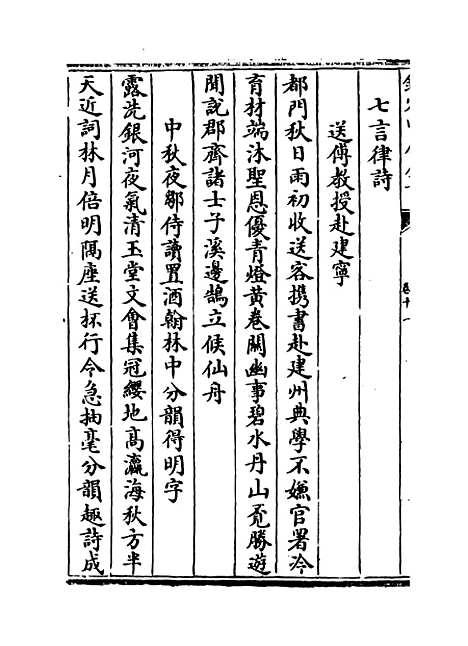 七言律詩
送傅教授赴建寧
都門秋日雨初收送客携書赴建州典學不嫌官署冷
育材端沐聖恩優青燈黄卷關幽事碧水丹山覓勝遊
聞說郡齋諸士子溪邊鵠立候仙舟
中秋夜鄒侍讀置酒翰林中分韻得明字
露洗銀河夜氣清玉堂文會集冠纓地髙瀛海秋方半
天近詞林月倍明隔座送抔行令急抽毫分韻趣詩成
卷十一